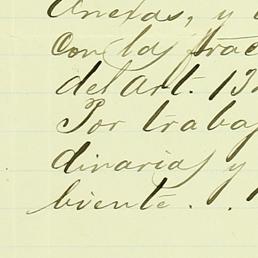 Anexas, y
con las frac
del Art. 13
Por traba
dinarias y
biente. . 1